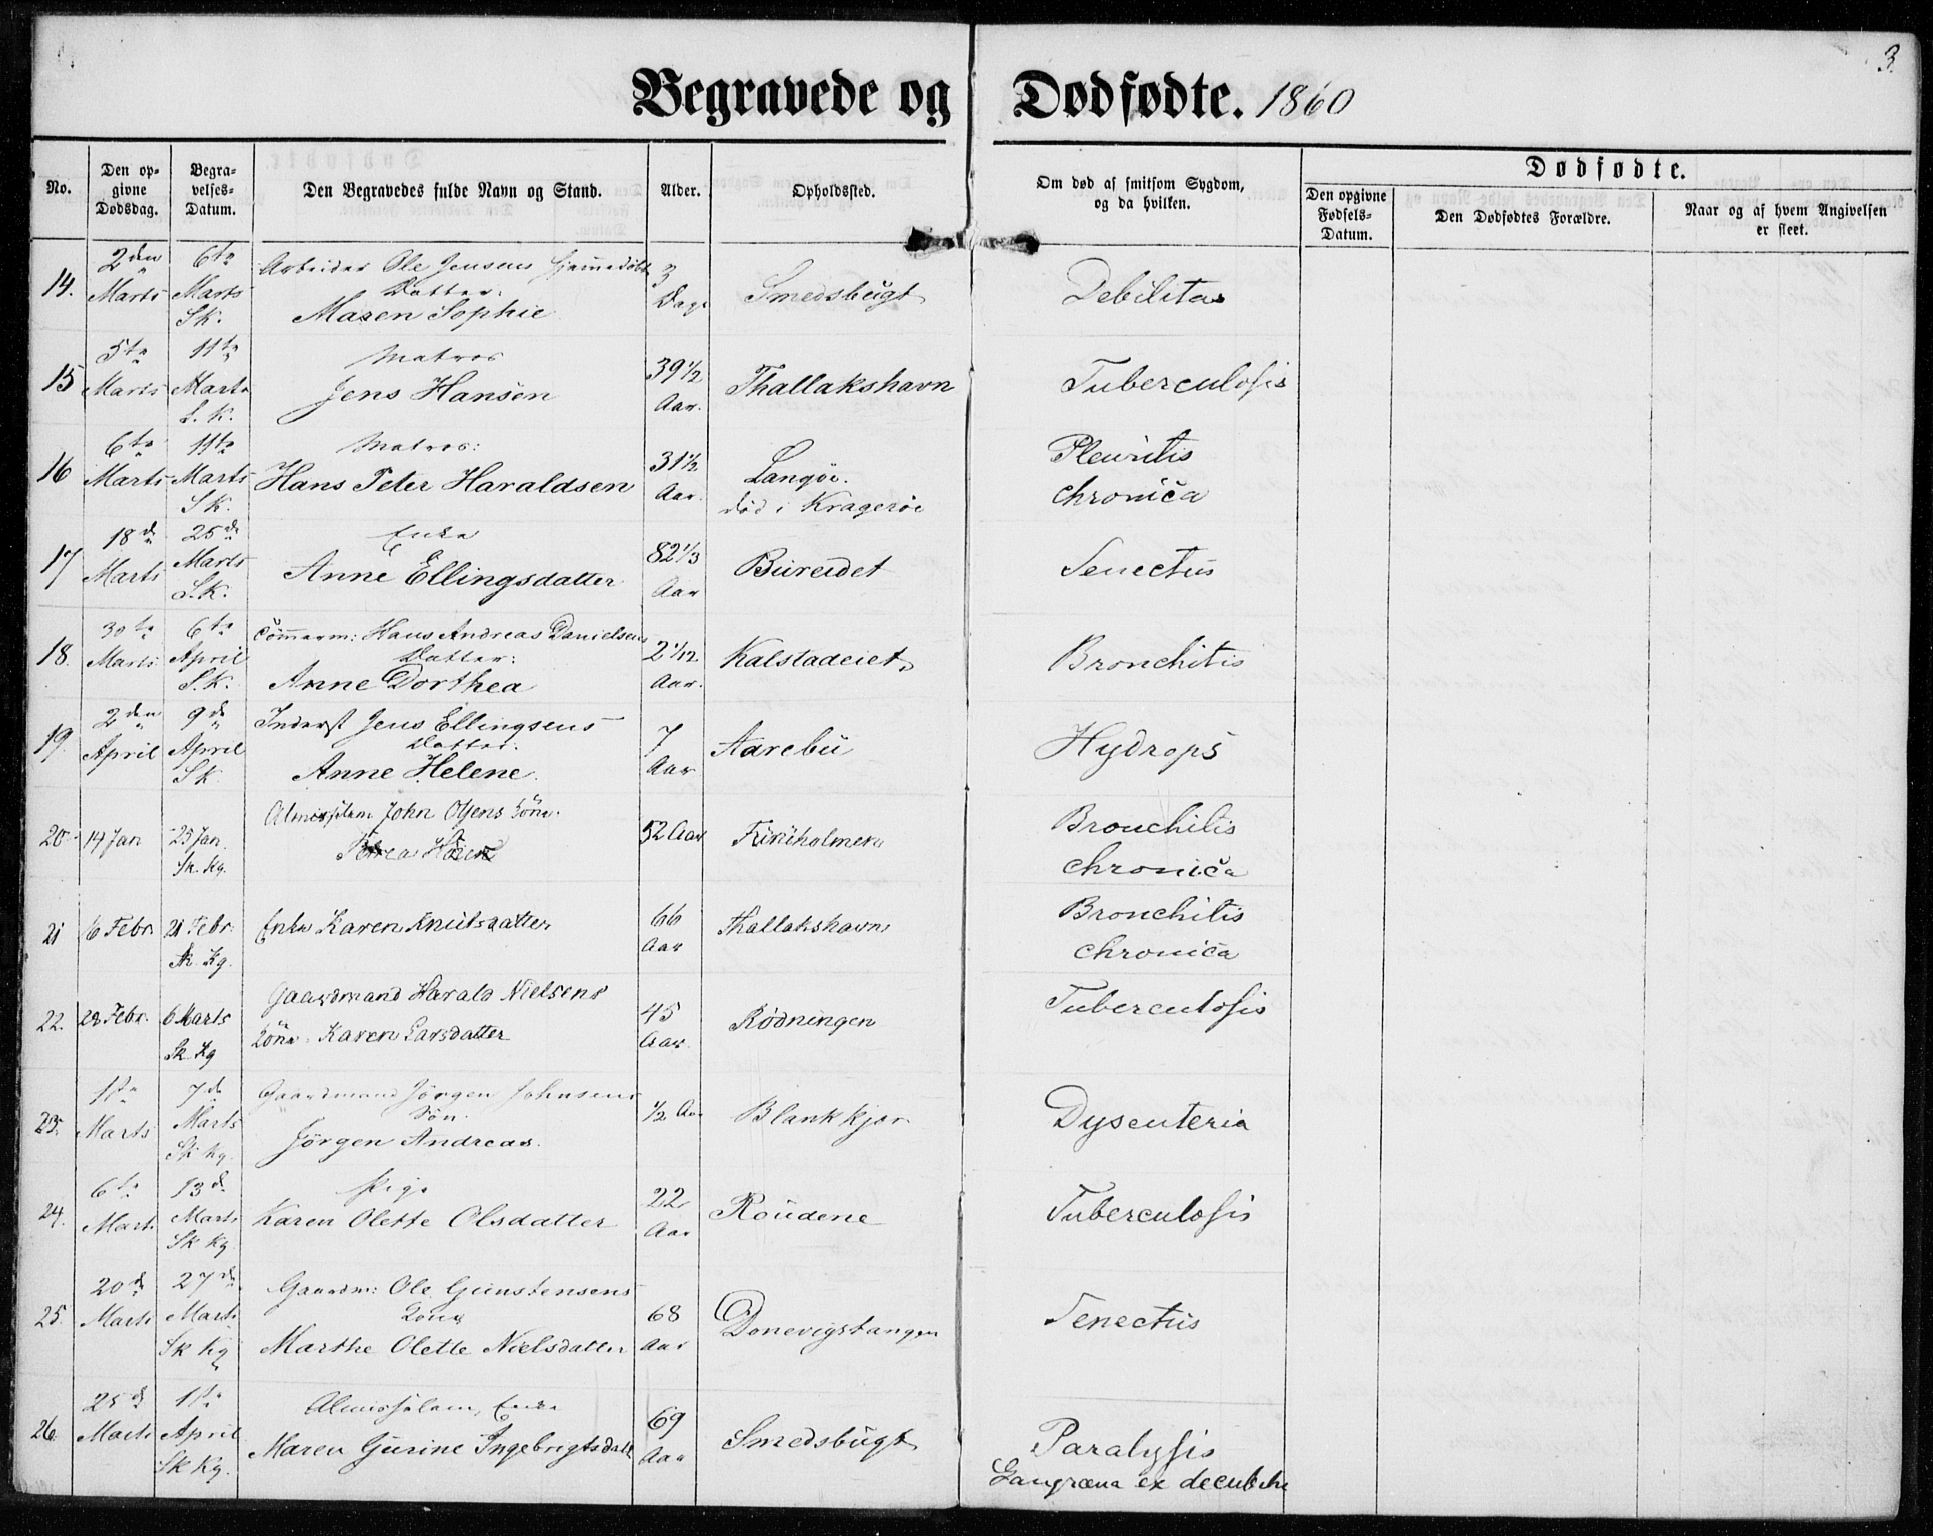 3.
Begravede og Dødfødte. 1860
No.
Den op-
givne
Dødsdag.
Begra-
velses-
Datum.
Den Begravedes fulde Navn og Stand.
Alder.
Opholdssted.
Om død af smitsom Sygdom,
og da hvilken.
Dødfødte.
Den opgivne
Fødsels-
Datum.
Den Dødfødtes Forældre.
Naar og af hvem Angivelsen
er skeet.
14.
2den
Marts
6te
Marts
SK.
Arbeider Ole Jensens hjemmedøbte
Datter:
Maren Sophie
3
Dage
Smedsbugt
Debilitas
15
5te
Marts
11te
Marts
S.K.
Matros
Jens Hansen
39½
Aar.
Thallakshavn
Tuberculosis
16
6te
Marts
11te
Marts
SK.
Matros:
Hans Peter Haraldsen
31½
Aar.
Langöe.
død i Kragerøe
Pleuritis
chronica
17
18de
Marts
25de
Marts
S.K.
Enke
Anne Ellingsdatter
82⅓
Aar
Bureidet
Senectus
18.
30te
Marts
6te
April
S.K.
Tömmerm: Hans Andreas Danielsens
Datter:
Anne Dorthea
2 1/12
Aar.
Kalstadeiet
Bronchitis
19.
2den
April
9de
April
SK.
Inderst Jens Ellingsens
Datter.
Anne Helene.
7
Aar
Aarebu
Hydrops
20
14 Jan
23 Jan.
Sk. Kg.
Almisselem John Olsens Kone.
52 Aar
Furuholmen
Bronchitis
chronica
21
16 Febr.
21 Febr.
Sk. Kg.
Enke Karen Knutsdatter
66
Aar
Thallakshavn
Bronchitis
chronica
22.
28 Febr.
6 Marts
Sk. Kg
Gaardmand Harald Nielsens
Kone. Karen Larsdatter
45
Aar.
Rødningen
Tuberculosis
23.
1ste
Marts
7de
Marts
Sk Kg.
Gaardmand Jørgen Johnsens
Søn.
Jørgen Andreas.
½ Aar
Blankkjør
Dysenteria
24.
6te
Marts
13de
Marts
Sk Kg.
Pige
Karen Olette Olsdatter
22
Aar
Roudene
Tuberculosis
25.
20de
Marts
27de
Marts
Sk Kg
Gaardm: Ole Gunstensens
Kone
Marthe Olette Nielsdatter
68
Aar
Donevigstangen
Senectus
26.
25de
Marts
1ste
April
Sk Kg.
Almisselem, Enke
Maren Gurine Ingebrigtsdatt
69
Aar
Smedsbugt
Paralysis
Gangræna ex decubitu